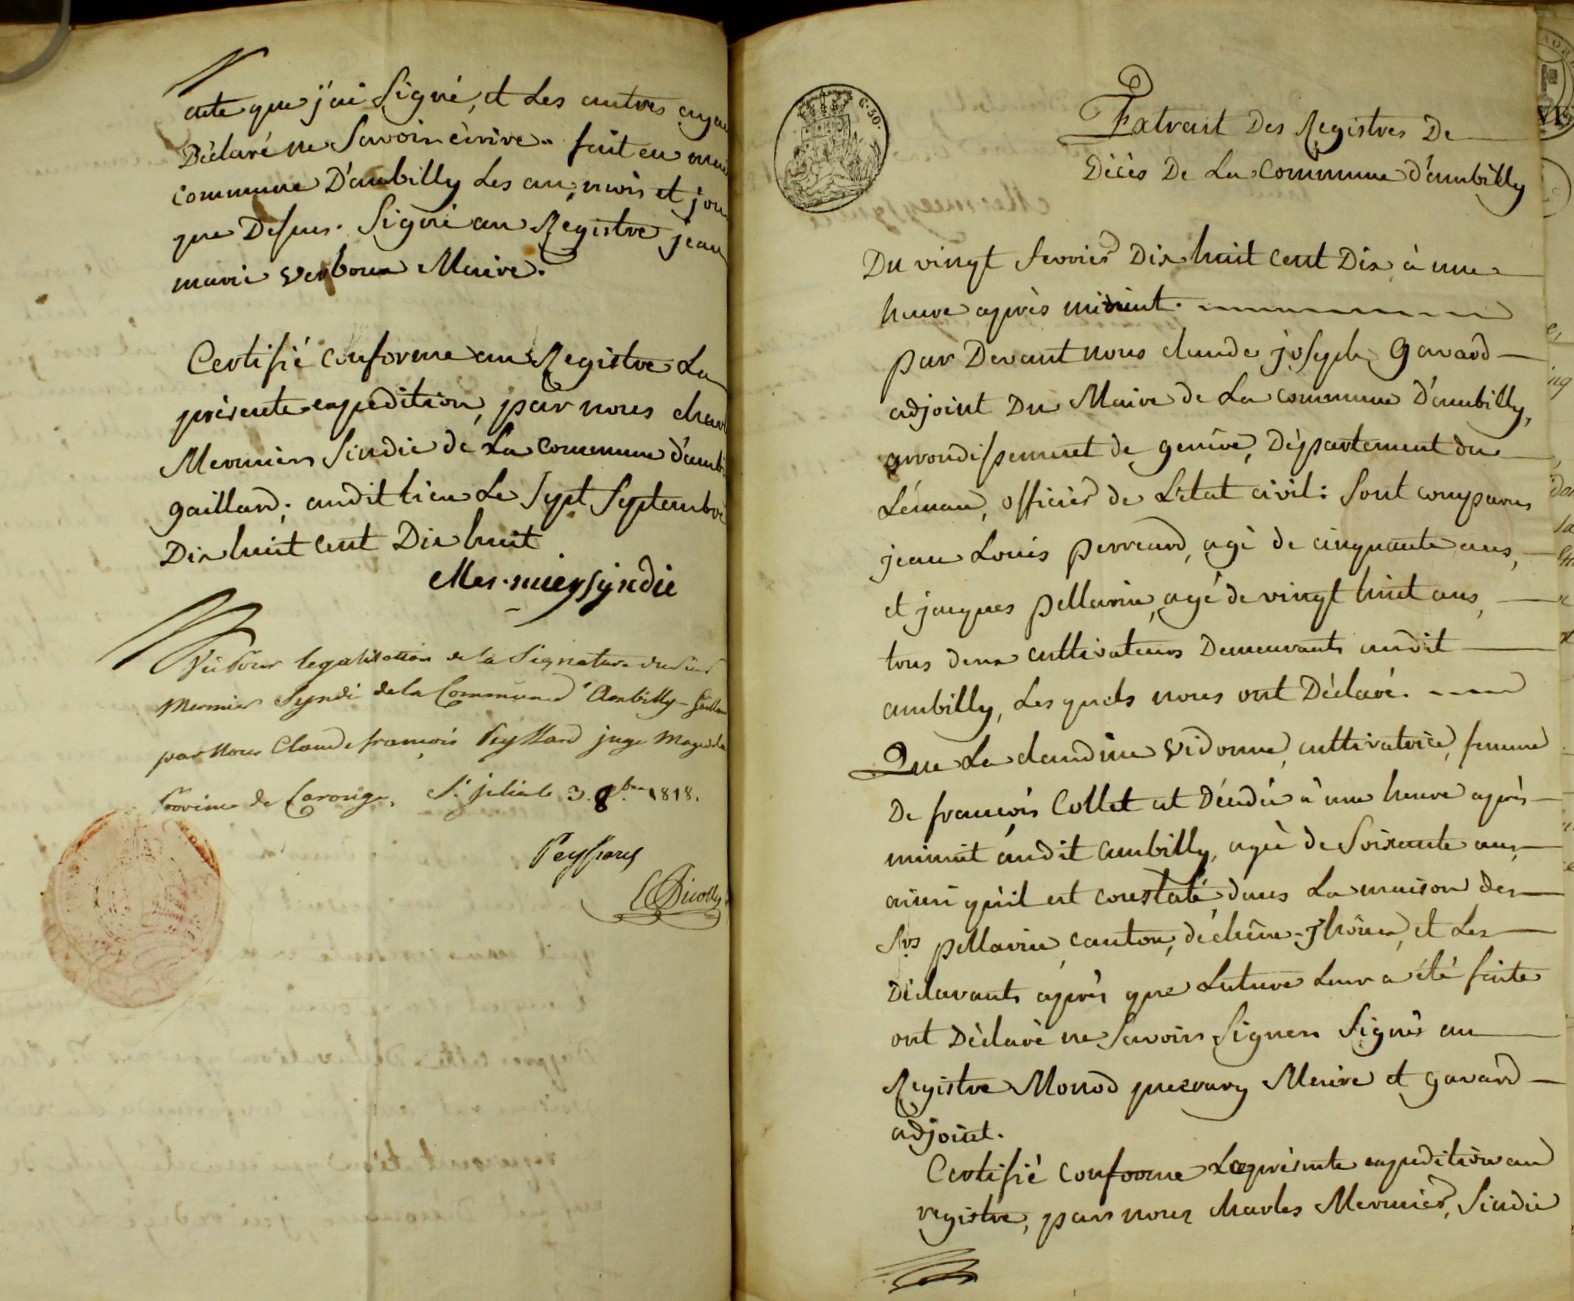 acte que j'ai signé, et les autres ayant
Déclaré ne Savoir écrire. fait en
commune D'ambilly les an, mois et jour
que Dessus. Signé au Registre jean
marie Verboux Maire.
Certifié conforme au Registre La
présente expedition, par nous
Mermier Sindic de La commune d'ambilly
gaillard; audit lieu Le Sept Septembre
Dix huit cent Dix huit
Mermier syndic
Vu Pour legalisation de la Signature du Sieur
Mermier Syndic de la Commune d'Ambilly-
par Nous Claude françois Peyssard juge Mage de la
Province de Carouge, St. julien le 3. 8bre 1818.
Peyssard
6.30.
Extrait Des Registres De
Décès De La Commune d'ambilly
Du vingt fevrier Dix huit cent Dix à une
heure après minuit.
par Devant nous claude joseph Gavard
adjoint Du Maire de La commune D'ambilly,
arrondissement de genève, Département du
Léman, officier de L'etat civil: Sont comparus
jean Louis perreard, agé de cinquante ans,
et jacques pellarin, agé de vingt huit ans,
tous deux cultivateurs Demeurants audit
ambilly, Lesquels nous ont Déclaré.
Que La claudine Vidonne, cultivatrice, femme
De françois Collet est Décédée à une heure après
minuit audit ambilly, agée de Soixante ans,
ainsi qu'il est constaté dans La maison des
frs pellarin, canton, de chêne-thônex, et Les
Déclarants après que Lecture Leur a été faite
ont Déclaré ne Savoir Signer Signés au
Registre Monod Maire et gavard
adjoint.
Certifié conforme La présente expedition au
registre, par nous charles Mermier, Sindic